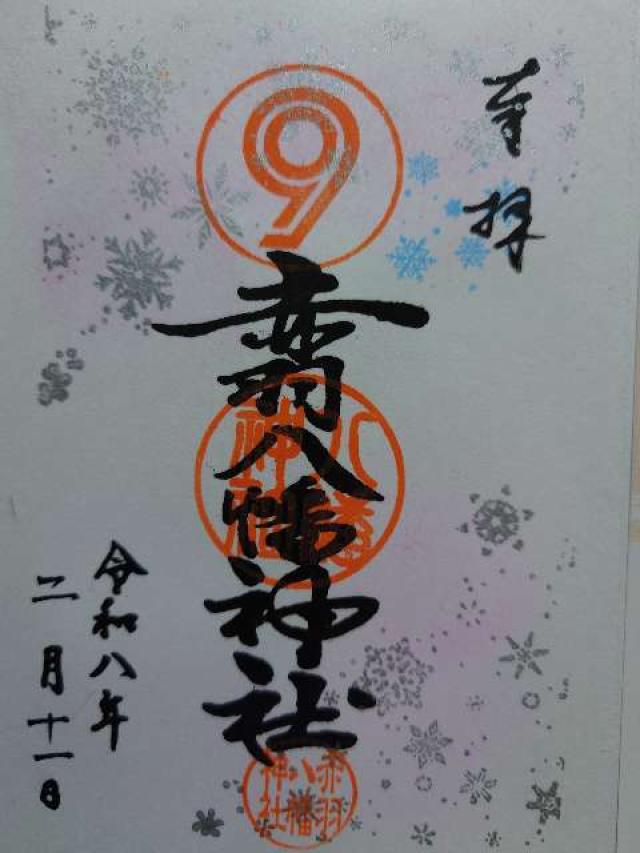 奉拝
9
赤羽八幡神社
八幡神社
赤羽八幡神社
令和八年
二月十一日